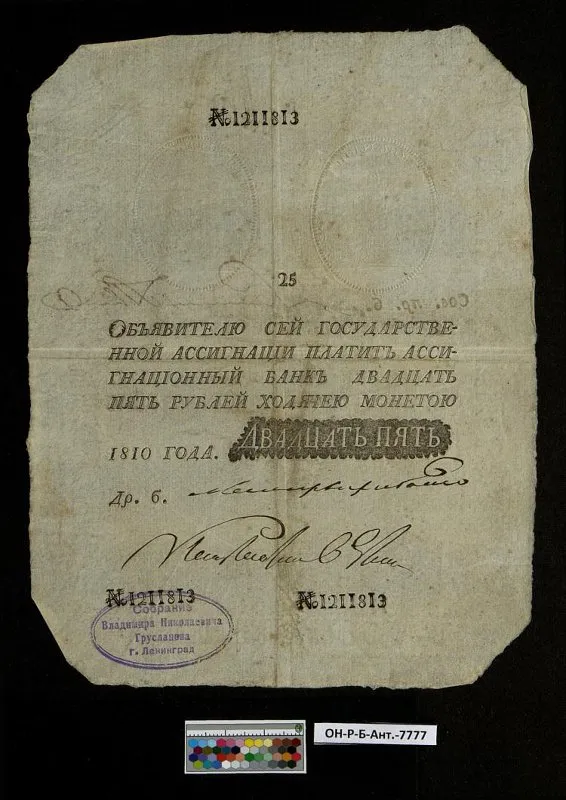 №1211813
25
ОБЪЯВИТЕЛЮ СЕЙ ГОСУДАРСТВЕ-
ННОЙ АССИГНАЦІИ ПЛАТИТЪ АССИ-
ГНАЦІОННЫЙ БАНКЪ ДВАДЦАТЬ
ПЯТЬ РУБЛЕЙ ХОДЯЧЕЮ МОНЕТОЮ
1810 ГОДА. ДВАДЦАТЬ ПЯТЬ
Др. б.
№1211813 №1211813
Собрание
Владимира Николаевича
Грусланова
г. Ленинград
ОН-Р-Б-Ант.-7777